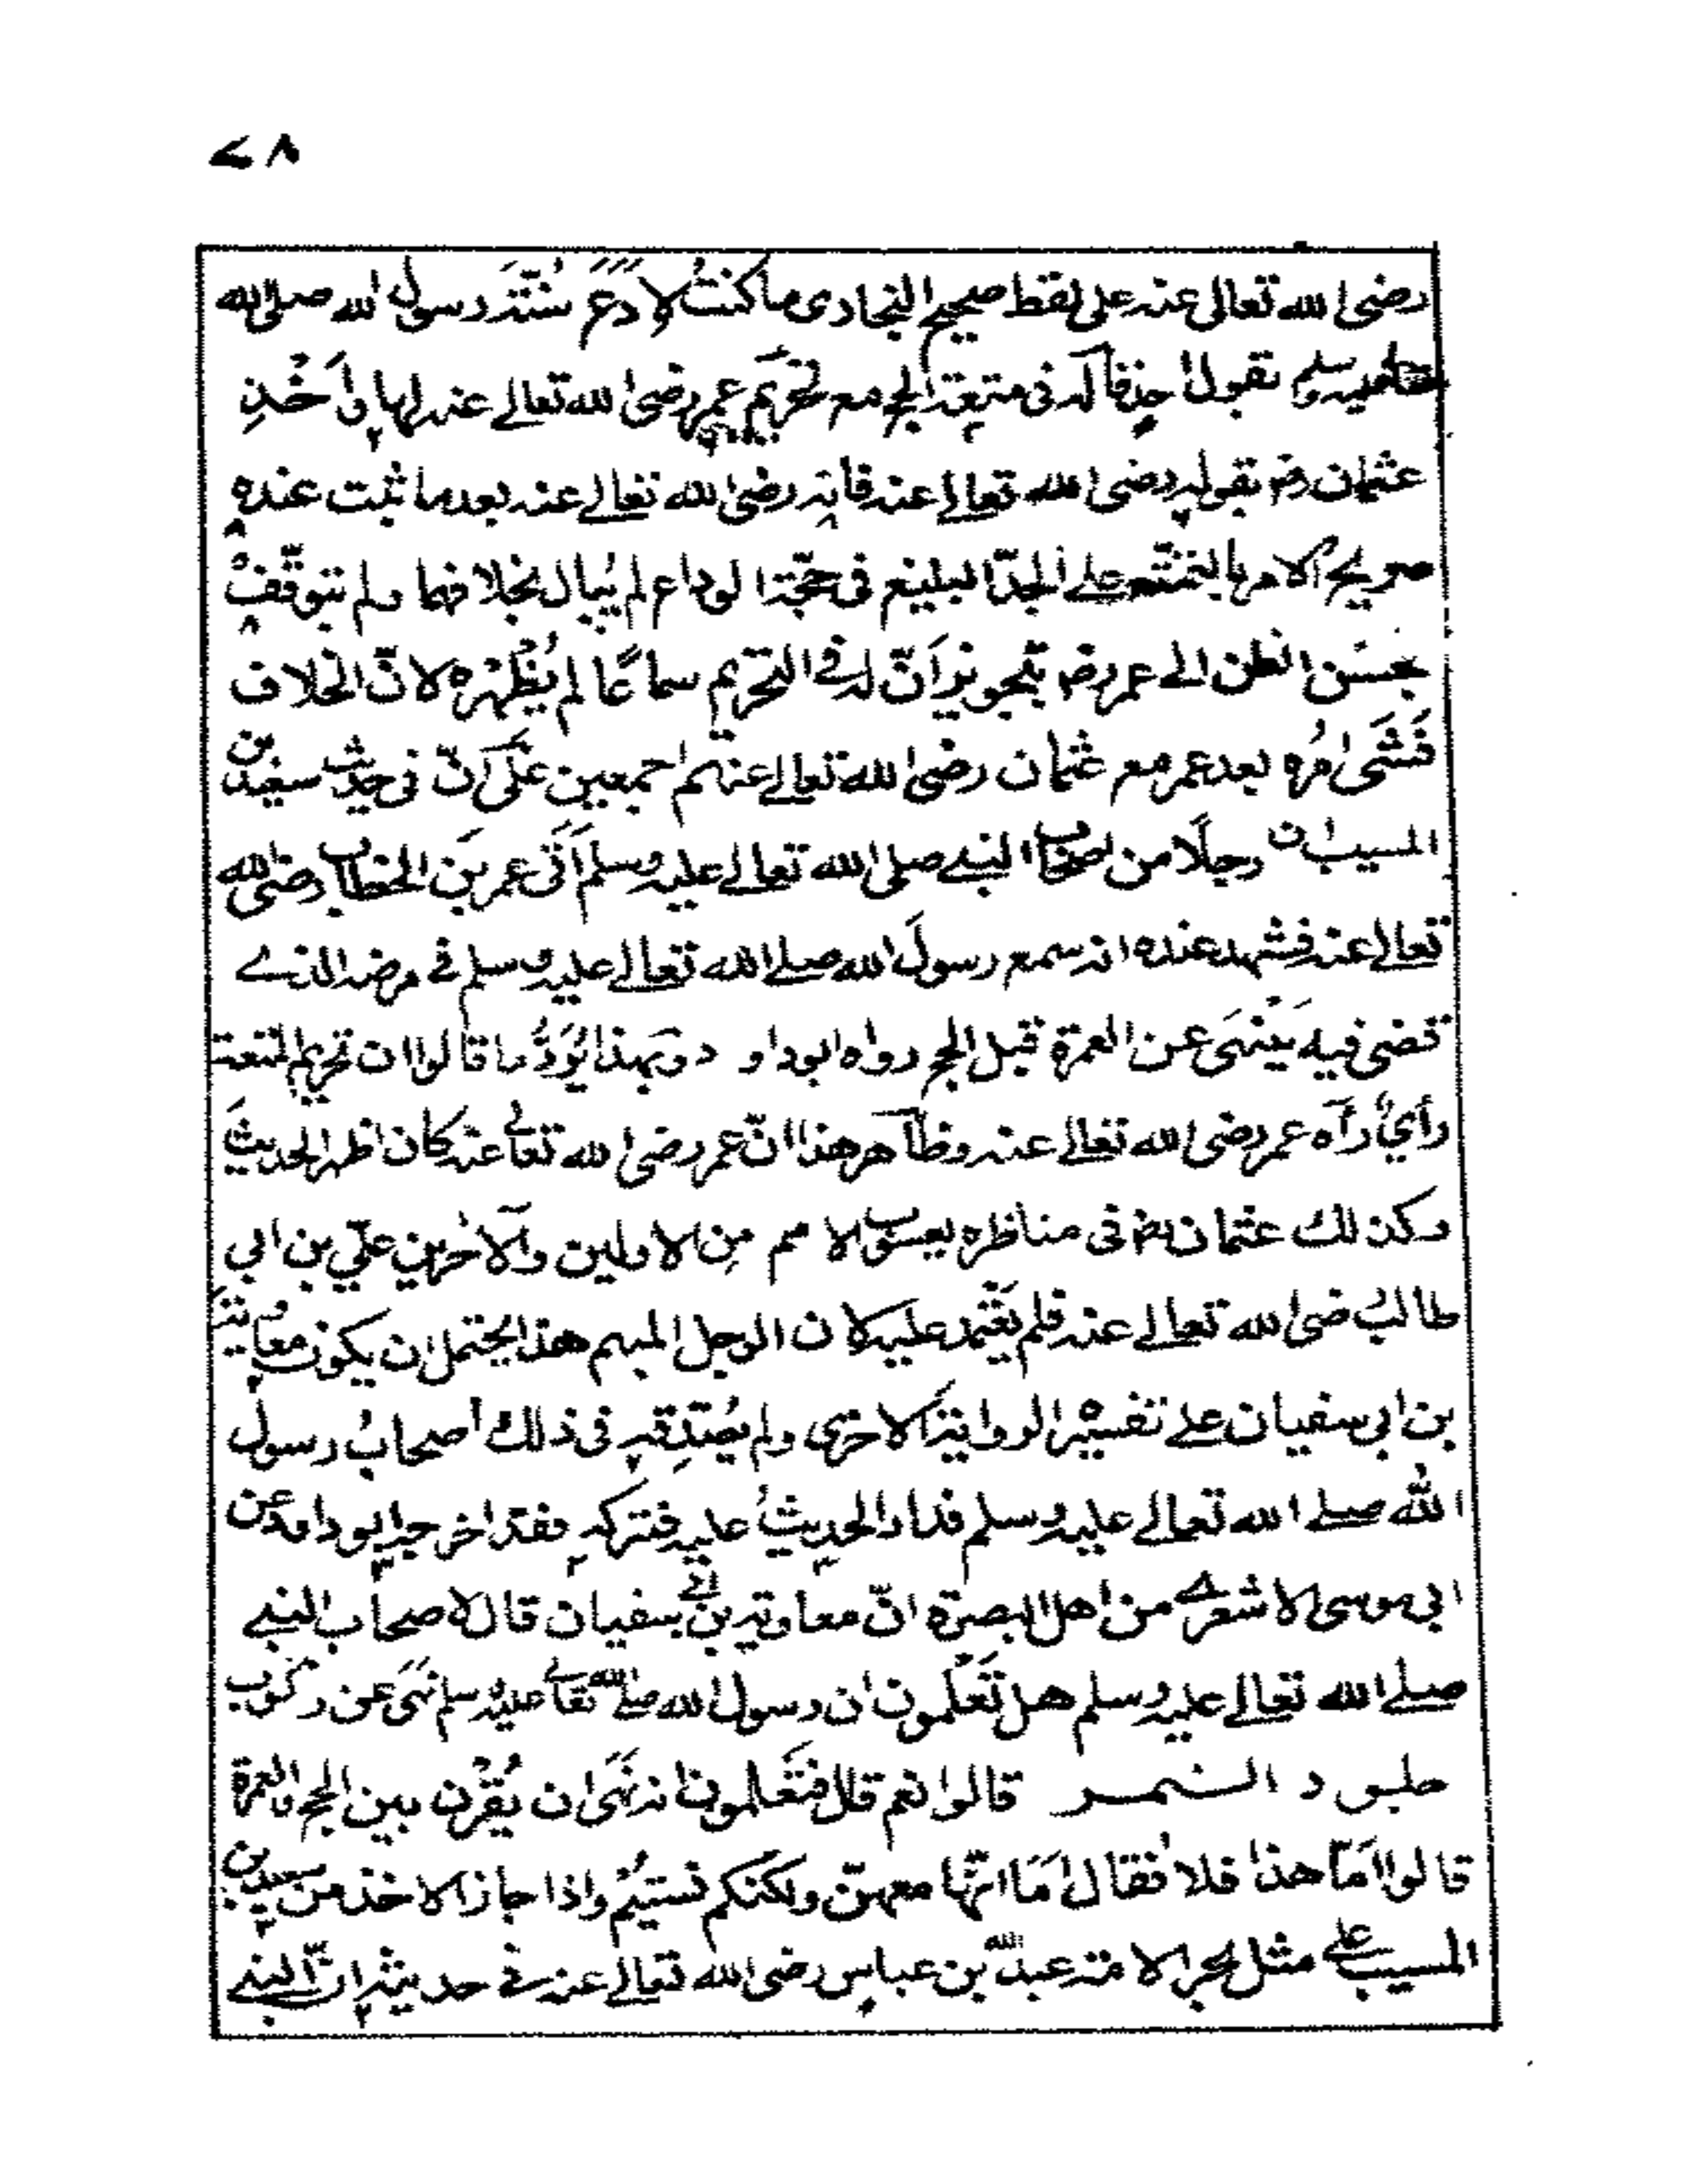 ٧٨
رضى الله تعالى عنه على لفظ صحيح البخارى ما كنتُ لِاَدَعَ سُنَّةَ رسول الله صلى الله
عليه وسلم بقول احد فاكد فى متعة الحج مع تحريم عمر رضى الله تعالى عنه لها وأخذِ
عثمان رضـ بقوله رضى الله تعالى عنه فانه رضى الله تعالى عنه بعد ما ثبت عنده
صريح الامر بالتمتّع على الجدّ البليغ فى حجّة الوداع لم يُبال بخلافهما ولم يتوقّفْ
بحسن الظن الى عمر رضـ بتجويز أنّ له فى التحريم سماعًا لم يُظْهِرْه لانّ الخلاف
فَشَى امْرُه بعد عمر مع عثمان رضى الله تعالى عنهم اجمعين على انّ فى حديث سعيد بن
المسيب ان رجلًا من اصحاب النبى صلى الله تعالى عليه وسلم أتى عمر بن الخطاب رضى الله
تعالى عنه فشهد عنده انه سمع رسولَ الله صلى الله تعالى عليه وسلم فى مرضه الذى
قضى فيه يَنْهَى عن العمرة قبل الحج رواه ابوداو د وبهذا يُرَدُّ ما قالوا ان تحريم المتعة
رأيٌ رآه عمر رضى الله تعالى عنه وظاهر هذا انّ عمر رضى الله تعالى عنه كان اظهر الحديثَ
وكذلك عثمان رضـ فى مناظره يعسوب الامم مِن الاولين والآخرين علي بن ابى
طالب رضى الله تعالى عنه فلم يَعْتمد عليه لان الرجل المبهم هذا يحتمل ان يكون معاوية
بن ابى سفيان على تفسير الرواية الاخرى ولم يُصَدِّقه فى ذلك أصحابُ رسول
الله صلى الله تعالى عليه وسلم فدار الحديثُ عليه فتركه فقد اخرجه ابوداود عن
ابى موسى الاشعرى من اهل البصرة انّ معاوية بن ابى سفيان قال لاصحاب النبى
صلى الله تعالى عليه وسلم هل تَعْلمون ان رسول الله صلى الله تعالى عليه وسلم نَهَى عن ركوب
جلود النمر قالوا نعم قال فتَعْلمون انه نَهَى ان يُقْرن بين الحج والعمرة
قالوا اَمّا هذا فلا فقال اَمَا انّها معهنّ ولكنكم نسيتُم واذا جاز الاخذ من سعيد بن
المسيب على مثل بحر الامة عبد الله بن عباس رضى الله تعالى عنه فى حديثه انّ النبى